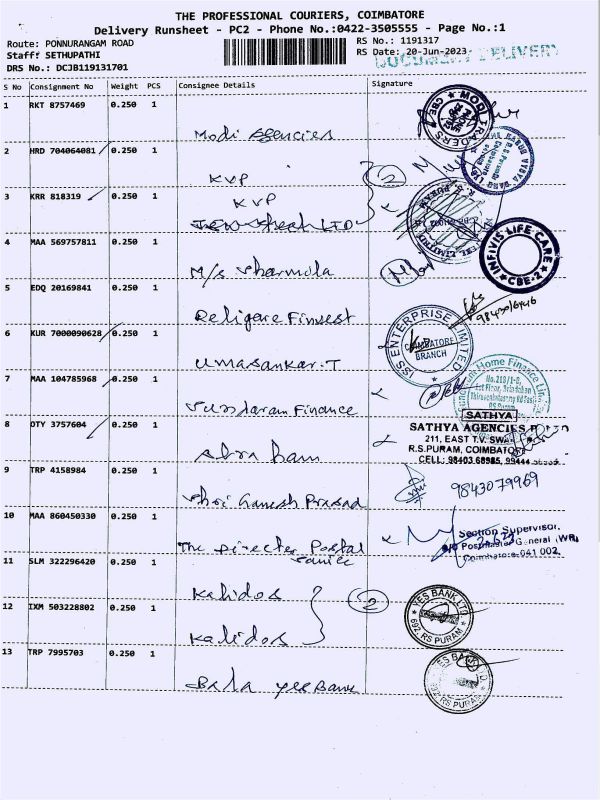 THE PROFESSIONAL COURIERS, COIMBATORE
Delivery Runsheet - PC2 - Phone No.:0422-3505555 - Page No.:1
Route: PONNURANGAM ROAD
Stafff SETHUPATHI
DRS No.: DCJB119131701
RS No.: 1191317
RS Date: 20-Jun-2023
DOCUMENT DELIVERY
S No Consignment No Weight PCS Consignee Details Signature
1 RKT 8757469 0.250 1
Modi Agencies
MODI TRADERS
CBE
2 HRD 704064081 0.250 1
KVP
2
3 KRR 818319 0.250 1
KVP
LTD
4 MAA 569757811 0.250 1
M/s Sharmila
INFIVIS LIFE CARE
CBE-2
5 EDQ 20169841 0.250 1
Religare Finvest
6 KUR 7000090628 0.250 1
Umasankar.T
ISS ENTERPRISE LIMITED
COIMBATORE
BRANCH
7 MAA 104785968 0.250 1
Sundaram Finance
Home Finance Limited
8 OTY 3757604 0.250 1
SATHYA
SATHYA AGENCIES
211, EAST T.V. SWAMY
R.S.PURAM, COIMBATORE
CELL: 98403 68985, 99444
9 TRP 4158984 0.250 1
Shri Ganesh Prasad
9843079969
10 MAA 860450330 0.250 1
The Director Postal
Service
Section Supervisor.
O/o Postmaster General (WR)
Coimbatore-641 002.
11 SLM 322296420 0.250 1
Kalidos
12 IXM 503228802 0.250 1
Kalidos
2
YES BANK LTD
692, RS PURAM
13 TRP 7995703 0.250 1
Bala Yes Bank
YES BANK LTD
692, RS PURAM